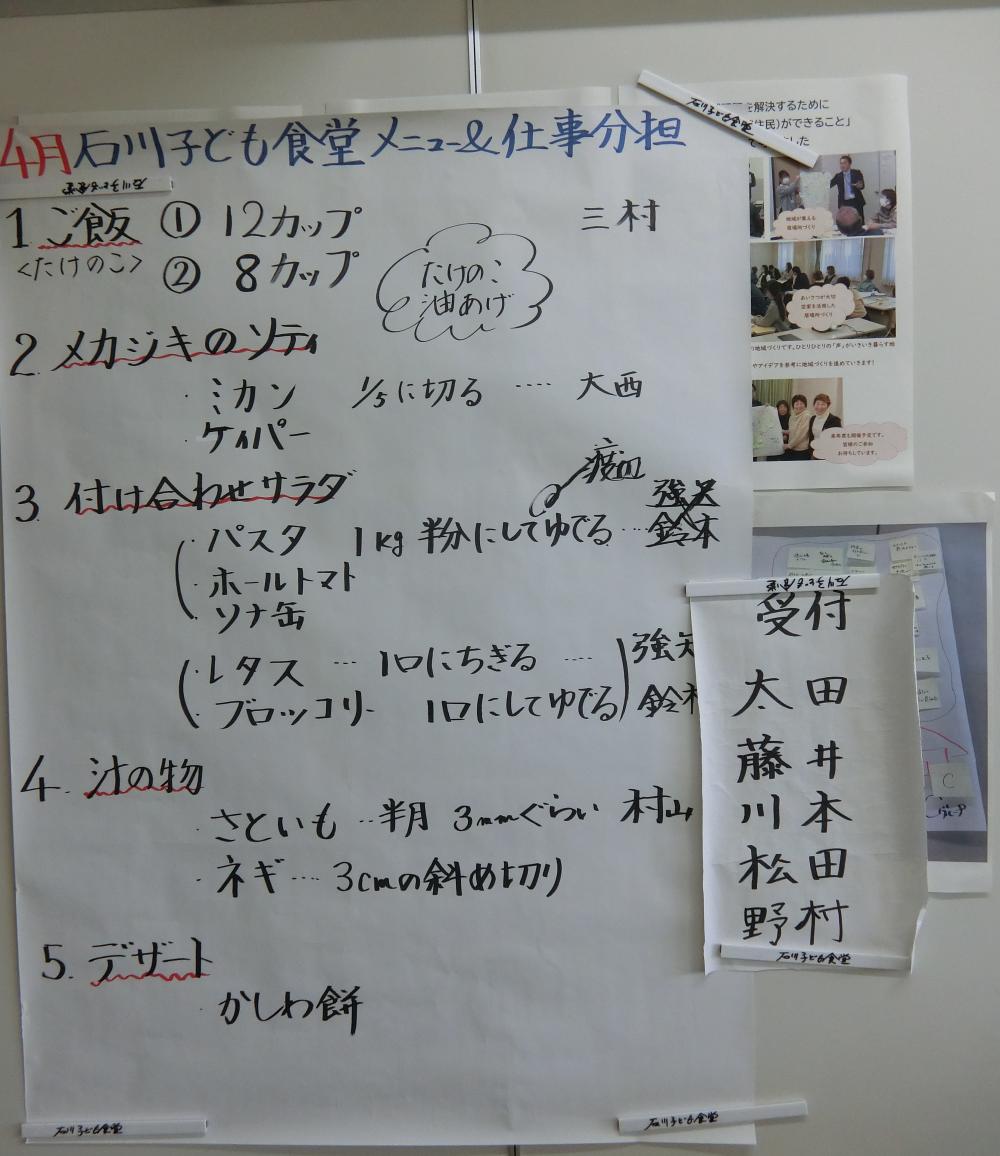 4月石川子ども食堂メニュー&仕事分担
石川子ども食堂
1 ご飯 ① 12カップ 三村
<たけのこ> ② 8カップ
たけのこ
油あげ
2. メカジキのソティ
・ミカン 1/5に切る ···· 大西
・ケイパー
渡辺
3 付け合わせサラダ
強矢
・パスタ 1kg 半分にしてゆでる ··· 鈴木
・ホールトマト
・ツナ缶
・レタス ··· 1口にちぎる ···· 強矢
・ブロッコリー 1口にしてゆでる 鈴木
4. 汁の物
・さといも ··半月 3mmぐらい 村山
・ネギ··· 3cmの斜め切り
5. デザート
・かしわ餅
石川子ども食堂
石川子ども食堂
石川子ども食堂
受付
太田
藤井
川本
松田
野村
石川子ども食堂
石川子ども食堂
を解決するために
住民)ができること」
した
地域が集える
居場所づくり
あいさつが大切
空家を活用した
居場所づくり
地域づくりです。ひとりひとりの「声」がいきいき暮らす地
やアイデアを参考に地域づくりを進めていきます!
来年度も開催予定です。
皆様のご参加
お待ちしています。
C
Cグループ